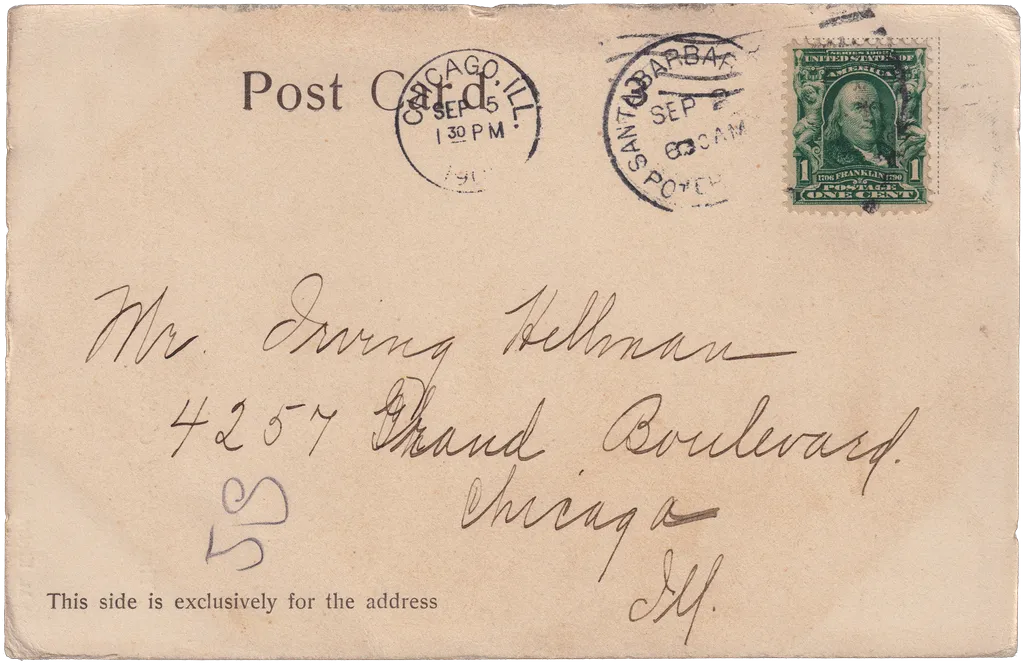 Post Card
CHICAGO, ILL.
SEP 5
1 30 PM
190
SANTA BARBAR
SEP 2
630AM
SERIES 1902
UNITED STATES OF
AMERICA
1706 FRANKLIN 1790
1 POSTAGE 1
ONE CENT
Mr. Irving Hellman
4257 Grand Boulevard.
Chicago
Ill.
58
This side is exclusively for the address